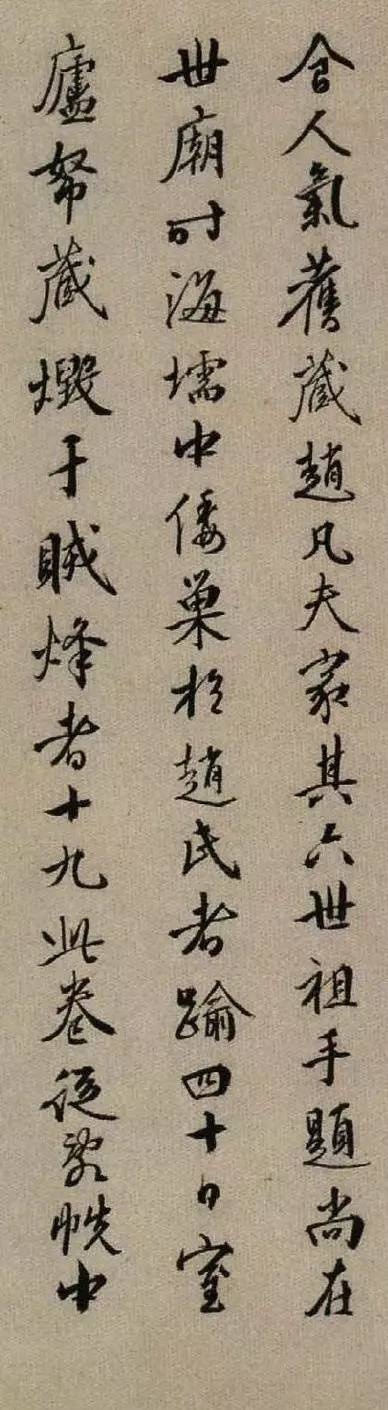 含人氣舊藏趙凡夫家其六世祖手題尚在
世廟時海壖中倭巢於趙氏者踰四十日室
廬帑藏燬于賊烽者十九此卷從敗帙中